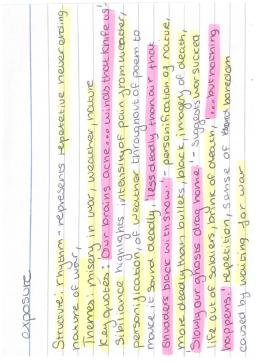 exposure
Structure: rhythm - represents repetetive never ending
nature of war,
Themes: misery in war, weather nature
Key quotes: 'Our brains ache... winds that knife us'
sibilance highlights intensity of pain from weather,
personification, of weather throughout of poem to
make it sound deadly, 'less deadly than our that
shudders black with snow' - personification of nature,
more deadly than bullets, black, imagery of death,
'Slowly our ghosts drag home' - suggests war sucked
life out of soldiers, brink of death, '... but nothing
happens' repetition, sense of boredom
caused by waiting for war